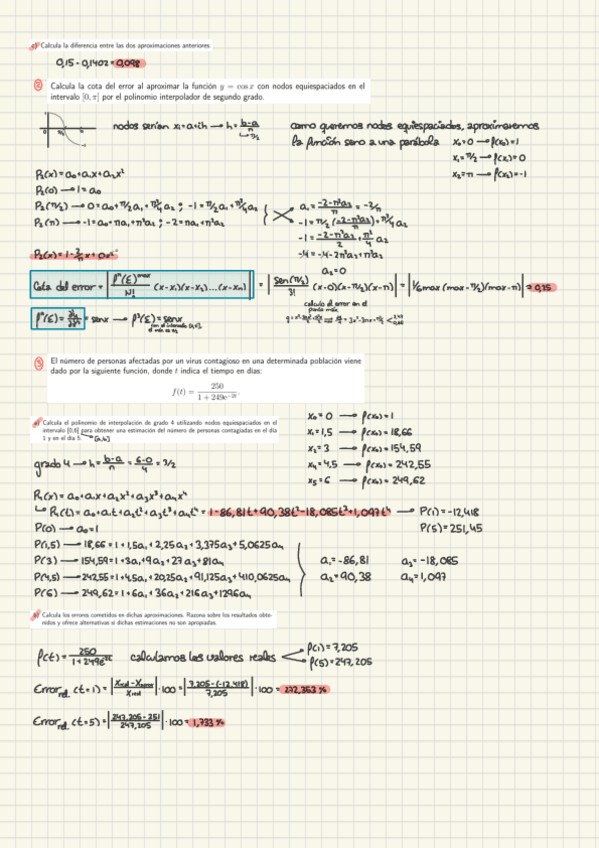 c) Calcula la diferencia entre las dos aproximaciones anteriores.
0,15 - 0,1402 = 0,098
2 Calcula la cota del error al aproximar la función y = cos x con nodos equiespaciados en el
intervalo [0, π] por el polinomio interpolador de segundo grado.
nodos serían xi = a+ih → h = b-a/n
↳ π/2
como queremos nodos equiespaciados, aproximaremos
la función seno a una parábola
x₀=0 → f(x₀)=1
x₁=π/2 → f(x₁)=0
x₂=π → f(x₂)=-1
P₂(x) = a₀+a₁x+a₂x²
P₂(0) → 1=a₀
P₂(π/2) → 0=a₀+π/2a₁+π²/4a₂ ; -1=π/2a₁+π²/4a₂
P₂(π) → -1=a₀+πa₁+π²a₂ ; -2=πa₁+π²a₂
a₁ = -2-π²a₂/π = -2/π
-1 = π/2(-2-π²a₂/π)+π²/4a₂
-1 = -2-π²a₂/2 + π²/4 a₂
-4 = -4-2π²a₂+π²a₂
a₂=0
P₂(x) = 1-2/πx+0x²
Cota del error = |fⁿ(ξ)max/N! (x-x₁)(x-x₂)...(x-xn)| = |sen(π/2)/3! (x-0)(x-π/2)(x-π)| = |1/6max(max-π/2)(max-π)| = 0,25
calculo el error en el
punto máx
= senx → f³(ξ)=senx
3 El número de personas afectadas por un virus contagioso en una determinada población viene
dado por la siguiente función, donde t indica el tiempo en días:
f(t) = 250/1 + 249e^-2t.
a) Calcula el polinomio de interpolación de grado 4 utilizando nodos equiespaciados en el
intervalo [0,6] para obtener una estimación del número de personas contagiadas en el día
1 y en el día 5.
x₀=0 → f(x₀)=1
x₁=1,5 → f(x₁)=18,66
x₂=3 → f(x₂)=154,59
x₄=4,5 → f(x₄)=242,55
x₅=6 → f(x₅)=249,62
grado 4 → h = b-a/n = 6-0/4 = 3/2
P₄(x) = a₀+a₁x+a₂x²+a₃x³+a₄x⁴
↳ P₄(t) = a₀+a₁t+a₂t²+a₃t³+a₄t⁴ = 1-86,81t+90,38t²-18,085t³+1,097t⁴ → P(1) = -12,418
P(5) = 251,45
P(0) → a₀=1
P(1,5) → 18,66=1+1,5a₁+2,25a₂+3,375a₃+5,0625a₄
P(3) → 154,59=1+3a₁+9a₂+27a₃+81a₄
P(4,5) → 242,55=1+4,5a₁+20,25a₂+91,125a₃+410,0625a₄
P(6) → 249,62=1+6a₁+36a₂+216a₃+1296a₄
a₁=-86,81 a₃=-18,085
a₂=90,38 a₄=1,097
b) Calcula los errores cometidos en dichas aproximaciones. Razona sobre los resultados obte-
nidos y ofrece alternativas si dichas estimaciones no son apropiadas.
f(t) = 250/1+249e^-2t calculamos los valores reales
f(1) = 7,205
f(5) = 247,205
Error rel (t=1) = |Xreal-Xaprox/Xreal|·100 = |7,205-(-12,418)/7,205|·100 = 272,353 %
Error rel (t=5) = |247,205-251/247,205|·100 = 1,733 %